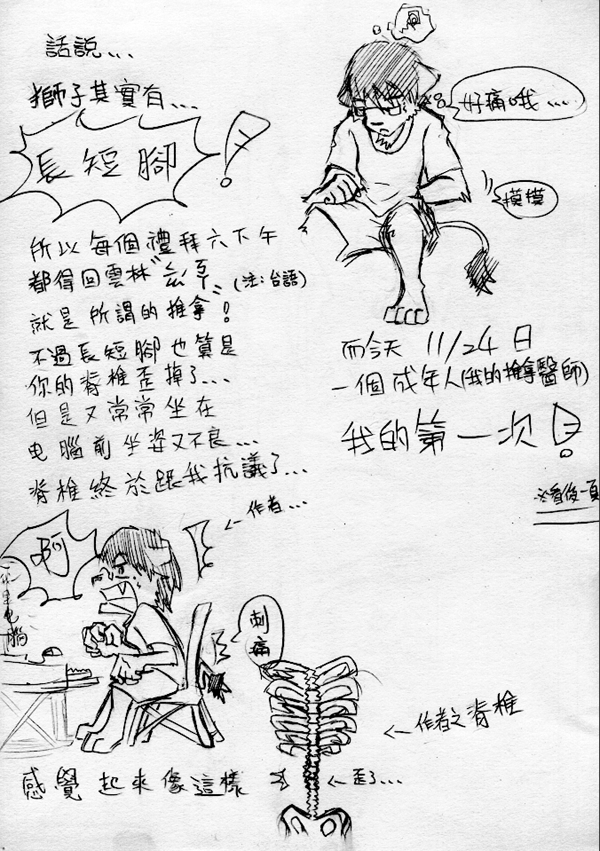 話說...
獅子其實有...
長短腳!
所以每個禮拜六下午
都得回雲林"ㄙㄠˊ" (注:台語)
就是所謂的推拿!
不過長短腳也算是
你的脊椎歪掉了...
但是又常常坐在
电腦前坐姿又不良...
脊椎終於跟我抗議了...
←作者...
啊
你是电腦
刺痛
感覺起來像這樣
←作者之脊椎
←歪了...
好痛哦....
摸摸
而今天 11/24日
一個成年人(我的推拿醫師)
我的第一次!
※看後一頁